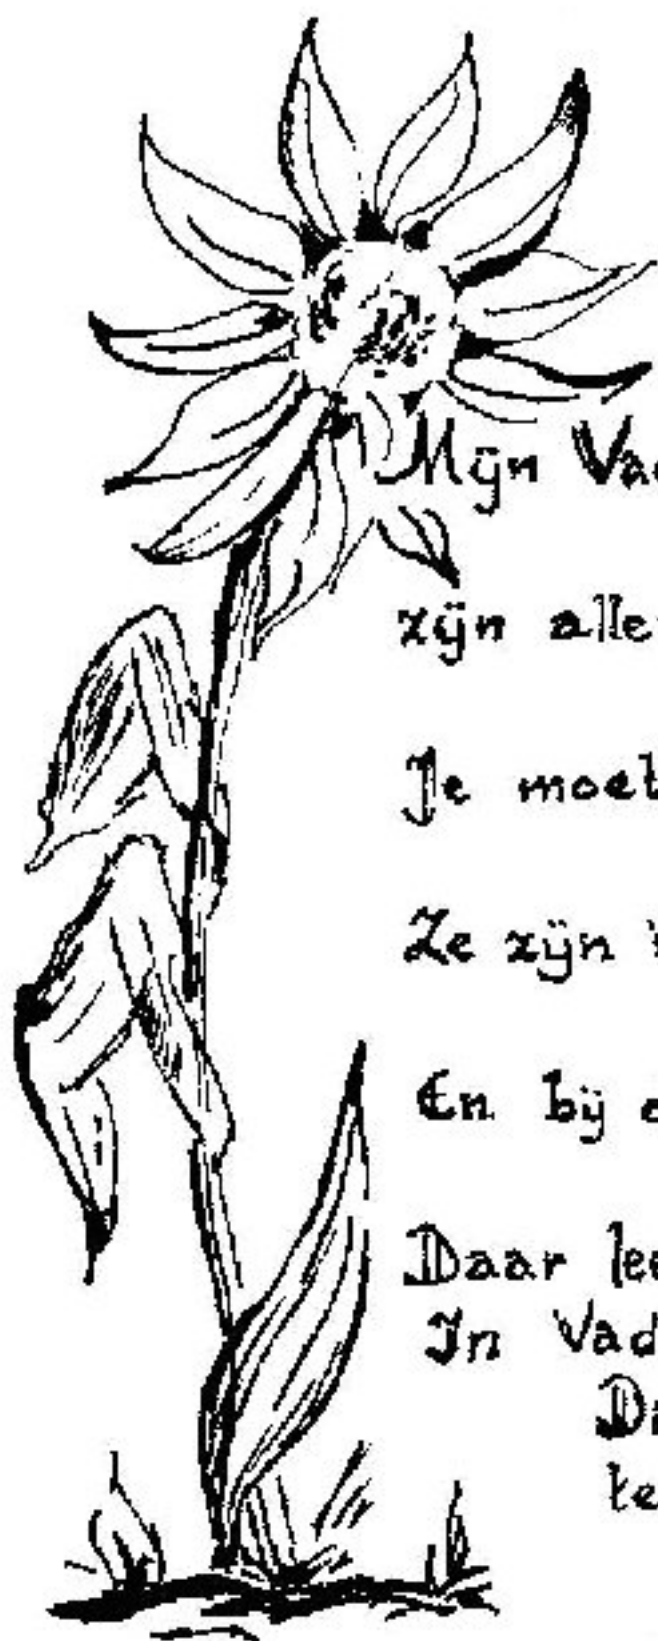 Mijn Va
zijn alle
Je moet
Ze zijn
En bij
Daar le
In Vad
D
te